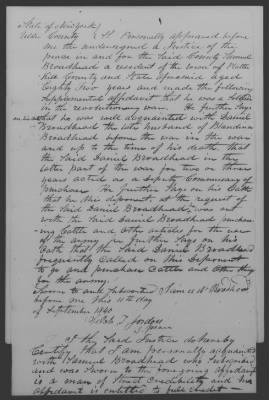 State of New York
Ulster County } SS Personally appeared before
me the undersigned a Justice of the
peace in and for the said County Samuel
Broadhead a resident of the town of
County and State aforesaid aged
Eighty two years and made the following
Supplemental affidavit that he was a soldier
in the revolutionary war. He further says
that he was well acquainted with Daniel
Broadhead the late husband of Blandina
Broadhead before the war in the war
and up to the time of his death that
the said Daniel Broadhead in the
latter part of the war for two or three
years acted as a Deputy Commissary of
purchases He further says on his oath
that he this deponent at the request of
the said Daniel Broadhead was out
with the said Daniel Broadhead
Cattle and other articles for the use
of the army he further says on his
oath that the said Daniel Broadhead
frequently called on this deponent
to go and purchase Cattle and other
for the army.
Sworn to and Subscribed
before me this 11th day
of September 1840
I the said Justice do hereby
Certify that I am personally acquainted
with Samuel Broadhead who subscribed
and was sworn to the foregoing affidavit
is a man of credibility and his
affidavit is entitled to full credit